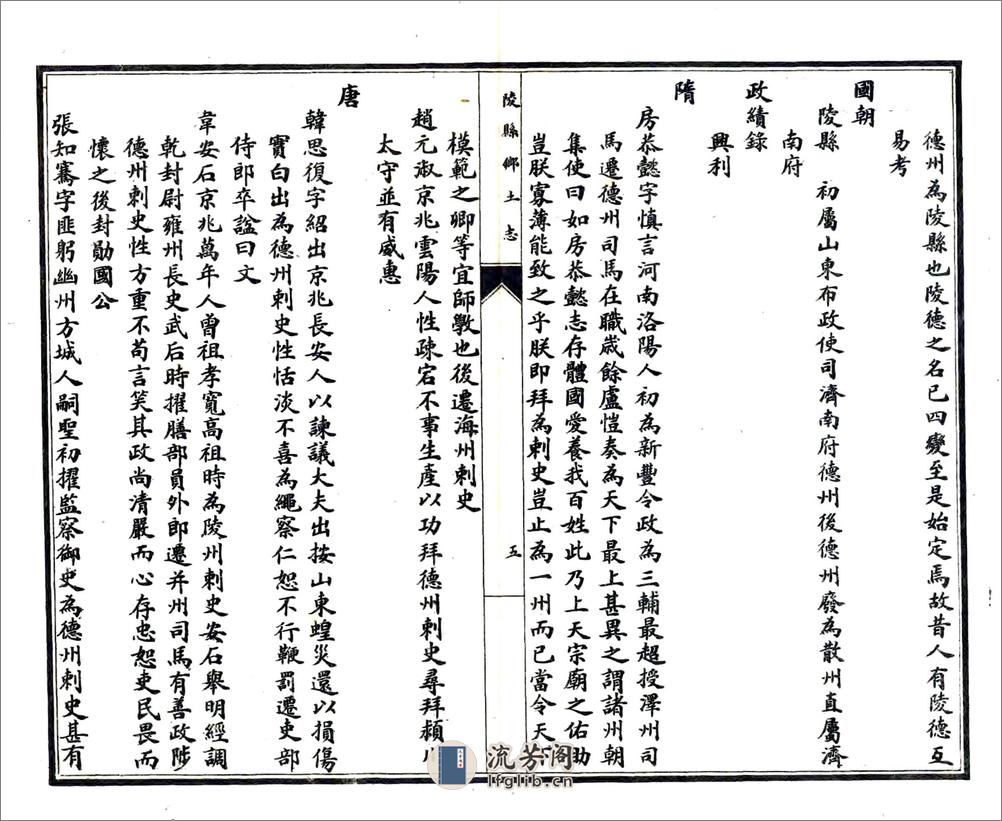 德州為陵縣也陵德之名已四變至是始定焉故昔人有陵德互
易考
國朝
陵縣 初屬山東布政使司濟南府德州後德州廢為散州直屬濟
南府
政績錄
興利
隋
房恭懿字慎言河南洛陽人初為新豐令政為三輔最超授澤州司
馬遷德州司馬在職歲餘盧愷奏為天下最上甚異之謂諸州朝
集使曰如房恭懿志存體國愛養我百姓此乃上天宗廟之佑助
豈朕寡薄能致之乎朕即拜為刺史豈止為一州而已當令天下
陵縣鄉土志
五
模範之卿等宜師斆也後遷海州刺史
趙元淑京兆雲陽人性疎宕不事生產以功拜德州刺史尋拜潁川
太守並有威惠
唐
韓思復字紹出京兆長安人以諫議大夫出按山東蝗災還以損傷
實白出為德州刺史性恬淡不喜為繩察仁恕不行鞭罰遷吏部
侍郎卒諡曰文
韋安石京兆萬年人曾祖孝寬高祖時為陵州刺史安石舉明經調
乾封尉雍州長史武后時擢膳部員外郎遷并州司馬有善政陟
德州刺史性方重不苟言笑其政尚清嚴而心存忠恕吏民畏而
懷之後封勛國公
張知騫字匪躬幽州方城人嗣聖初擢監察御史為德州刺史甚有
流芳阁
lfglib.cn